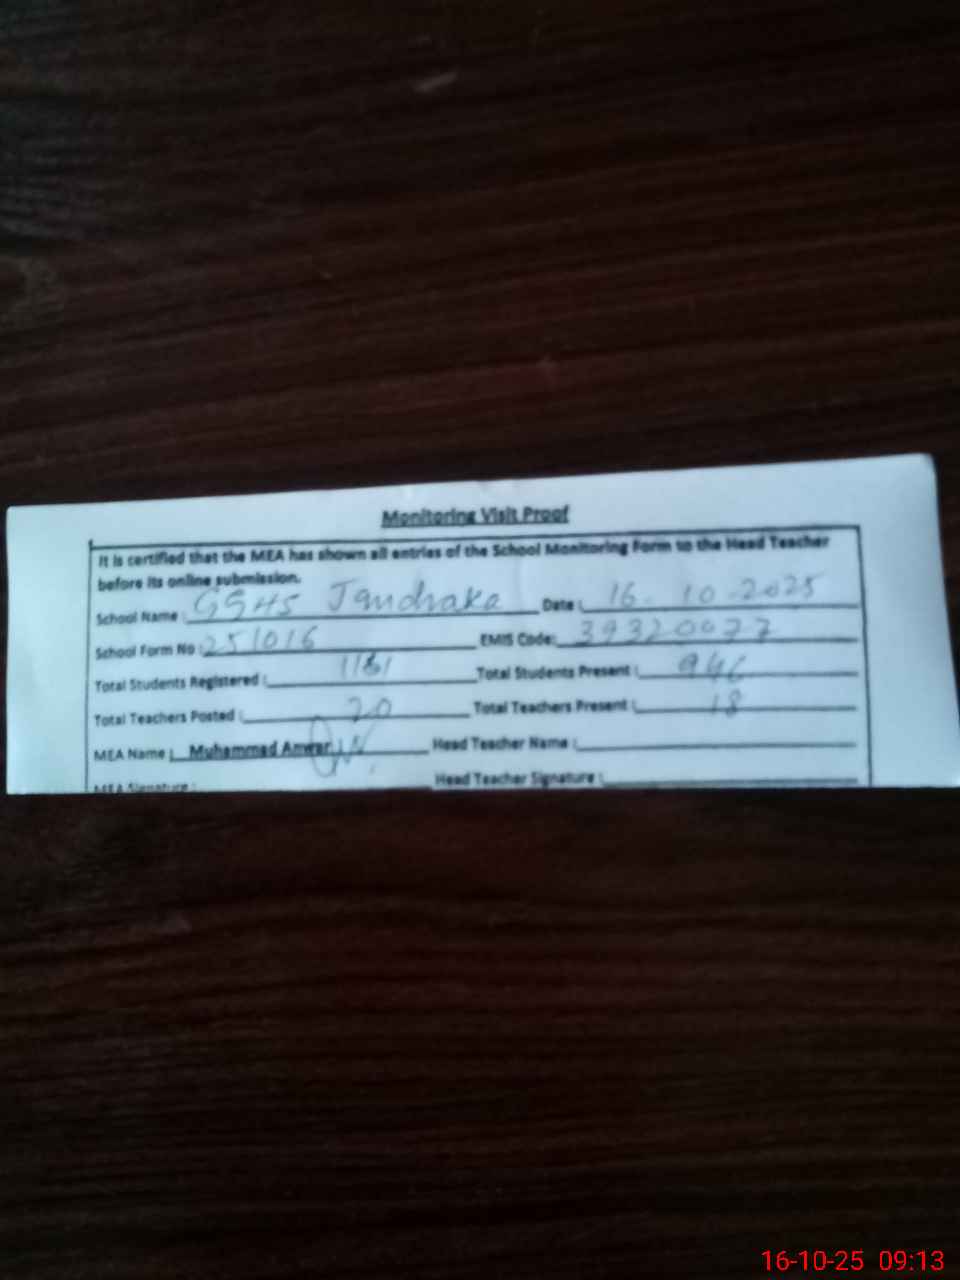 Monitoring Visit Proof
It is certified that the MEA has shown all entries of the School Monitoring Form to the Head Teacher
before its online submission.
School Name : GGHS Jandraka Date : 16-10-2025
School Form No : 251016 EMIS Code: 39320077
Total Students Registered : Total Students Present : 946
Total Teachers Posted : 20 Total Teachers Present : 18
MEA Name : Muhammad Anwar Head Teacher Name :
MEA Signature : Head Teacher Signature :
16-10-25 09:13